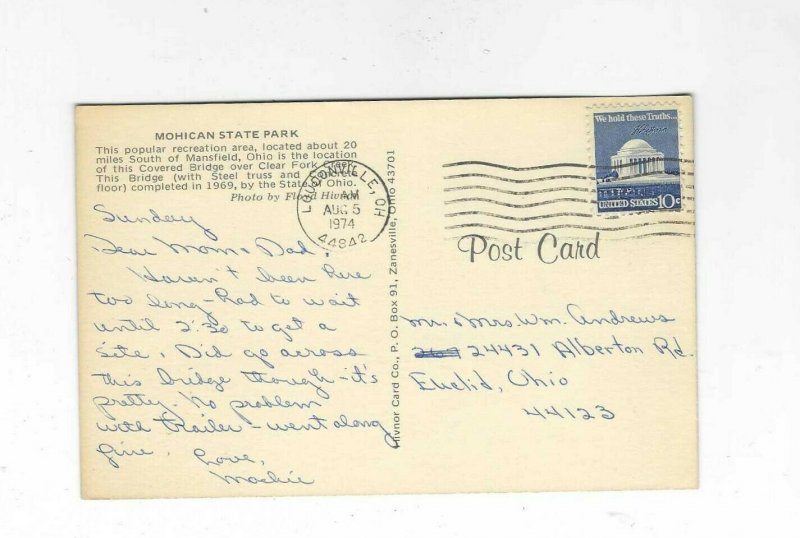 MOHICAN STATE PARK
This popular recreation area, located about 20
miles South of Mansfield, Ohio is the location
of this Covered Bridge over Clear Fork Creek.
This Bridge (with Steel truss and
floor) completed in 1969, by the State of Ohio.
Photo by Floyd Hivnor
Sunday
Dear Mom & Dad,
Haven't been here
too long - had to wait
until 2:30 to get a
site. Did go across
this bridge though - it's
pretty. No problem
with trailer - went along
fine. Love,
Hivnor Card Co., P. O. Box 91, Zanesville, Ohio 43701
LOUDONVILLE, OH
AM
AUG 5
1974
44842
We hold these Truths...
UNITED STATES 10c
Post Card
Mr. & Mrs. Wm. Andrews
24431 Alberton Rd.
Euclid, Ohio
44123